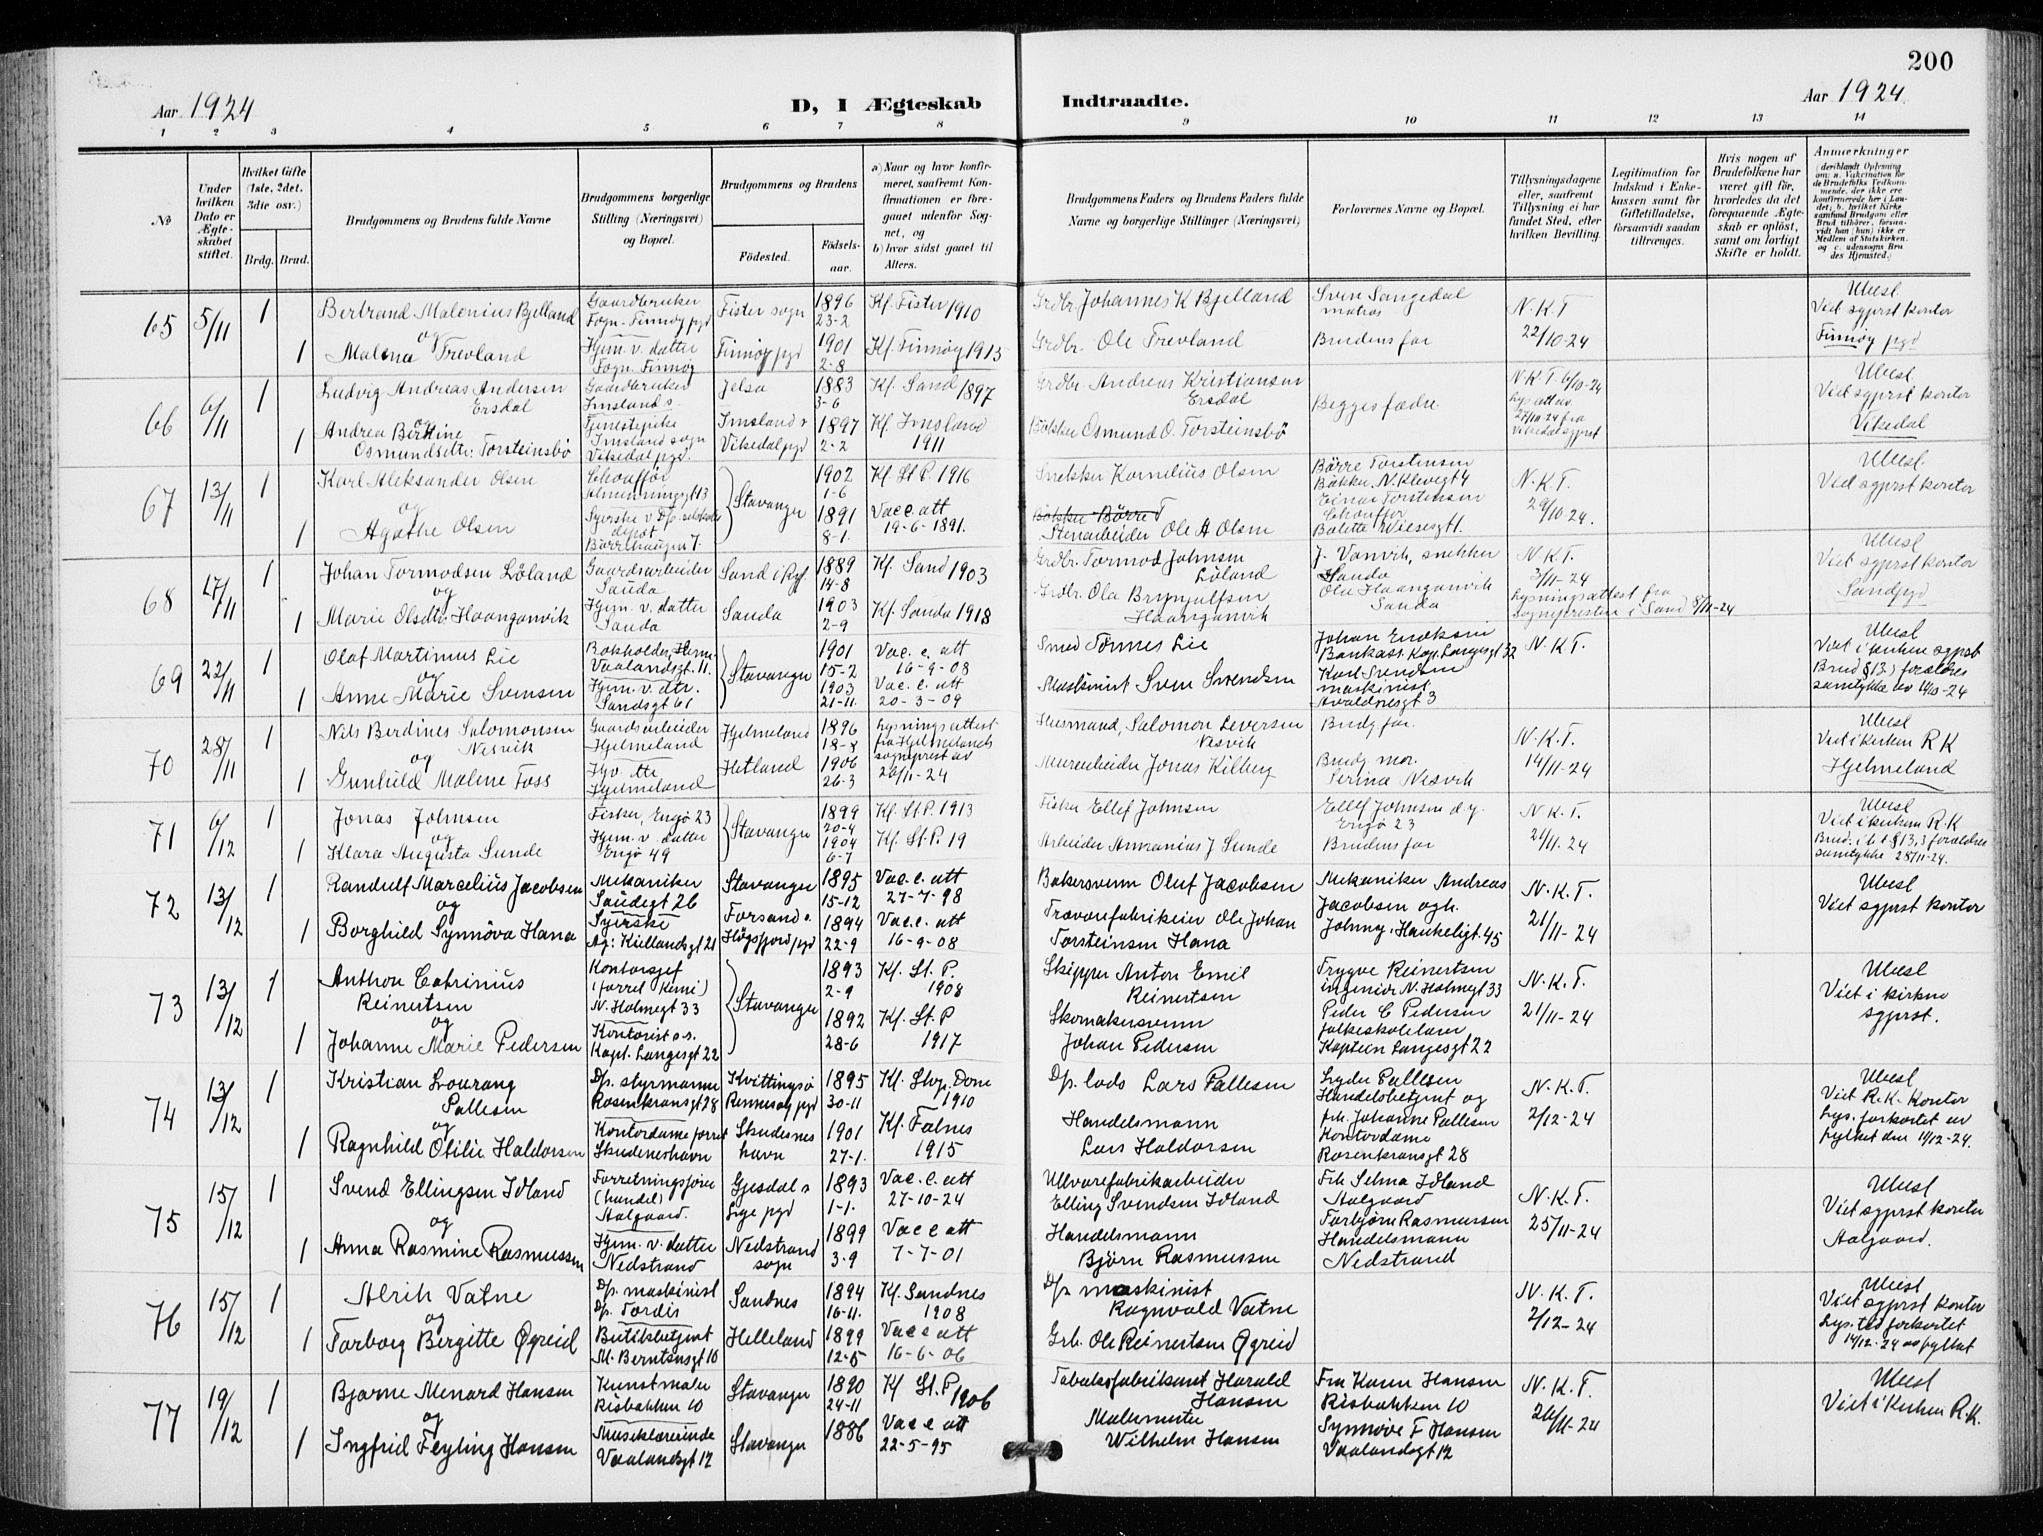 200
Aar 1924
D, I Ægteskab Indtraadte.
Aar 1924.
1 2 3 4 5 6 7 8 9 10 11 12 13 14
№
Under hvilken Dato er Ægteskabet stiftet.
Hvilket Gifte (1ste, 2det, 3die osv.)
Brdg. Brud.
Brudgommens og Brudens fulde Navne
Brudgommens borgerlige Stilling (Næringsvei) og Bopæl.
Brudgommens og Brudens
Födested.
Födselsaar.
a) Naar og hvor konfirmeret, saafremt Konfirmationen er foregaaet udenfor Sognet, og
b) hvor sidst gaaet til Alters.
Brudgommens Faders og Brudens Faders fulde Navne og borgerlige Stillinger (Næringsvei)
Forlovernes Navne og Bopæl.
Tillysningsdagene eller, saafremt Tillysning ei har fundet Sted, efter hvilken Bevilling.
Legitimation for Indskud i Enkekassen samt for Giftetilladelse, forsaavidt saadan tiltrænges.
Hvis nogen af Brudefolkene har været gift för, hvorledes da det foregaaende Ægteskab er oplöst, samt om lovligt Skifte er holdt.
Anmærkninger (deriblandt Oplysning om: a. Vakcination for de Brudefolks Vedkommende, der ikke ere konfirmerede her i Landet; b. hvilket Kirkesamfund Brudgom eller Brud tilhörer, forsaavidt han (hun) ikke er Medlem af Statskirken, og c. udensogns Brudes Hjemsted.)
65 5/11 1 Bertrand Malenius Bjelland Gaardbruker Fogn-Finnøy pgd Fister sogn 1896 23-2 Kf. Fister 1910 Grdbr. Johannes K Bjelland Sven Sangedal matros N.K.T Ubesl. Viet sgprst kontor
og
1 Malena Trevland Hjm. v. datter Fogn. Finnøy Finnøy pgd 1901 2-8 Kf. Finnøy 1915 Grdbr. Ole Trevland Brudens far 22/10-24 Finnøy pgd
66 6/11 1 Ludvig Andreas Andersen Ersdal Gaardbruker Imsland s. Jelsa 1883 3-6 Kf. Sand 1897 Grdbr. Andreas Kristiansen Ersdal Begges fædre N.K.T. 6/10-24 Ubesl. Viet sgprst kontor
og
1 Andrea Bertine Osmundsdtr. Torsteinsbö Tjenestepike Imsland sogn Vikedal pgd. Imsland s Vikedal pgd 1897 2-2 Kf. Imsland 1911 Bökker Osmund O. Torsteinsbö 27/10-24 fra Vikedal sgprst Vikedal
67 13/11 1 Karl Aleksander Olsen Chauffør Almenningsgt 13 Stavanger 1902 1-6 Kf. St P. 1916 Snekker Kornelius Olsen Börre Torstensen Bökker, N. Klevegt 4 N.K.T. Ubesl. Viet sgprst kontor
og
1 Agathe Olsen Syerske Börrehaugen 7. 1891 8-1. Vacc att 19-6-1891. Bökker Börre T Stenarbeider Ole A Olsen Einar Torstensen Chauffør Bolette Wiesesgt 1. 29/10-24.
68 27/11 1 Johan Tormodsen Löland Gaardsarbeider Sauda Sand i Ryf. 1889 14-8 Kf. Sand 1903 Grdbr. Tormod Johnsen Löland J. Vanvik, snekker Sauda N.K.T. 3/11-24 Ubesl Viet sgprst kontor
og
1 Marie Olsdtr. Haanganvik Hjm. v. datter Sauda Sauda 1903 2-9 Kf. Sauda 1918 Grdbr. Ola Brynjulfsen Haanganvik Ola Haanganvik Sauda lysningsattest fra sognepresten i Sand 8/11-24 Sand pgd
69 22/11 1 Olaf Martinius Lie Bokholder, Vaalandsgt. 11. Stavanger 1901 15-2 Vac. c. att 16-9-08 Smed Tönnes Lie Johan Eriksen Bankass. Kap. Langesgt 32 N.K.T. Ubesl Viet i kirken sgprst
og
1 Anne Marie Svensen Hjm. v. dtr. Sandsgt 61 1903 21-11. Vac. c. att 20-3-09 Maskinist Sven Svendsen Karl Svendsen maskinist Avaldsnesgt 3 Brud § 13, 3 foraldres samtykke av 16/10-24
70 28/11 1 Nils Berdines Salomonsen Nesvik Gaardsarbeider Hjelmeland Hjelmeland 1896 18-8 lysningsattest fra Hjelmelands sogneprest av Husmand, Salomon Seversen Nesvik Brudg far. N.K.T. Ubesl Viet i kirken R K
og
1 Gunhild Malene Foss Hjv. dtr Hjelmeland Hetland 1906 26-3 26/11-24 Murarbeider Jonas Kilberg Brudg mor. Serina Nesvik 14/11-24 Hjelmeland
71 6/12 1 Jonas Johnsen Fisker, Engö 23 Stavanger 1899 20-4 Kf. St. P. 1913 Fisker Ellef Johnsen Ellef Johnsen d.y. Engö 23 N.K.T. Ubesl Viet i kirken R.K
og
1 Klara Augusta Sunde Hjem. v. datter Engö 49 1904 6-7 Kf. St. P. 19 Arbeider Ananias J Sunde Brudens far 21/11-24 samtykke 28/11-24.
72 13/12 1 Randulf Marcelius Jacobsen Mekaniker Saudegt 26 Stavanger 1895 15-12 Vac. c. att 27-7-98 Bakersvenn Oluf Jacobsen Mekaniker Andreas Jacobsen ogh. N.K.T. Ubesl Viet sgprst kontor
og
1 Borghild Synnöva Hana Syerske Ag: Kiellandsgt 21 Forsand s. Högsfjord pgd 1894 22-9 Vac. c. att 16-9-08 Trævarefabrikeier Ole Johan Torsteinsen Hana Johny, Haukeligt. 45 21/11-24
73 13/12 1 Anthon Catrinius Reinertsen Kontorsjef N. Holmegt 33 Stavanger 1893 2-9 Kf. St. P. 1908 Skipper Anton Emil Reinertsen Trygve Reinertsen ingeniør N. Holmegt 33 N.K.T. Ubesl Viet i kirken sgprst.
og
1 Johanne Marie Pedersen Kontorist o.s. Kapt. Langesgt 22 1892 28-6 Kf. St. P 1917 Skomakersvenn Johan Pedersen Peder C Pedersen folkeskolelærer Kaptein Langesgt 22 21/11-24
74 13/12 1 Kristian Lourang Pallesen Dp. styrmann Rosenkransgt 28 Kvittingsö Rennesøy pgd 1895 30-11 Kf. Stvg. Dom 1910 Dp. lods Lars Pallesen Lyder Pallesen Handelsbetjent og N.K.T. Ubesl Viet R.K. kontor
og
1 Ragnhild Otilie Haldorsen Kontordame forret Skudeneshavn Skudeneshavn 1901 27-1. Kf. Falnes 1915 Handelsmann Lars Haldorsen frk. Johanne Pallesen Kontordame Rosenkransgt 28 2/12-24 lys. forkortet av fylket den 11/12-24.
75 15/12 1 Svend Ellingsen Idland Forretningsförer (handel) Aalgaard. Gjesdal s Lye pgd 1893 1-1. Vac. c. att 27-10-24 Ullvarefabrikarbeider Elling Svendsen Idland Frk Selma Idland Aalgaard N.K.T. Ubesl Viet sgprst kontor
og
1 Anna Rasmine Rasmussen Hjem. v. datter Nedstrand Nedstrand sogn 1899 3-9 Vacc att 7-7-01 Handelsmann Björn Rasmussen Torbjørn Rasmussen Handelsmann Nedstrand 25/11-24 Aalgaard.
76 15/12 1 Alrik Vatne Dp. maskinist Dp. Tordis Sandnes 1894 16-11. Kf. Sandnes 1908 Dp maskinist Ragnvald Vatne N.K.T. Ubesl Viet sgprst kontor
og
1 Torborg Bergitte Øgreid Butikbetjent M. Berntsensgt 10 Helleland 1899 12-5 Vacc att 16-6-06 Grb. Ole Reinertsen Øgreid 2/12-24 lys. tid forkortet 14/12-24 av fylket
77 19/12 1 Bjarne Menard Hansen Kunstmaler Risbakken 10 Stavanger 1890 24-11 Kf St. P 1906 Tobaksfabrikant Harald Hansen Fru Karen Hansen Risbakken 10 N.K.T. Ubesl Viet i kirken R.K.
og
1 Ingfrid Feyling Hansen Musiklærerinde Vaalandsgt 12 Stavanger 1886 Vacc att 22-5-95 Malermester Wilhelm Hansen Synnøve F Hansen Vaalandsgt 12 26/11-24